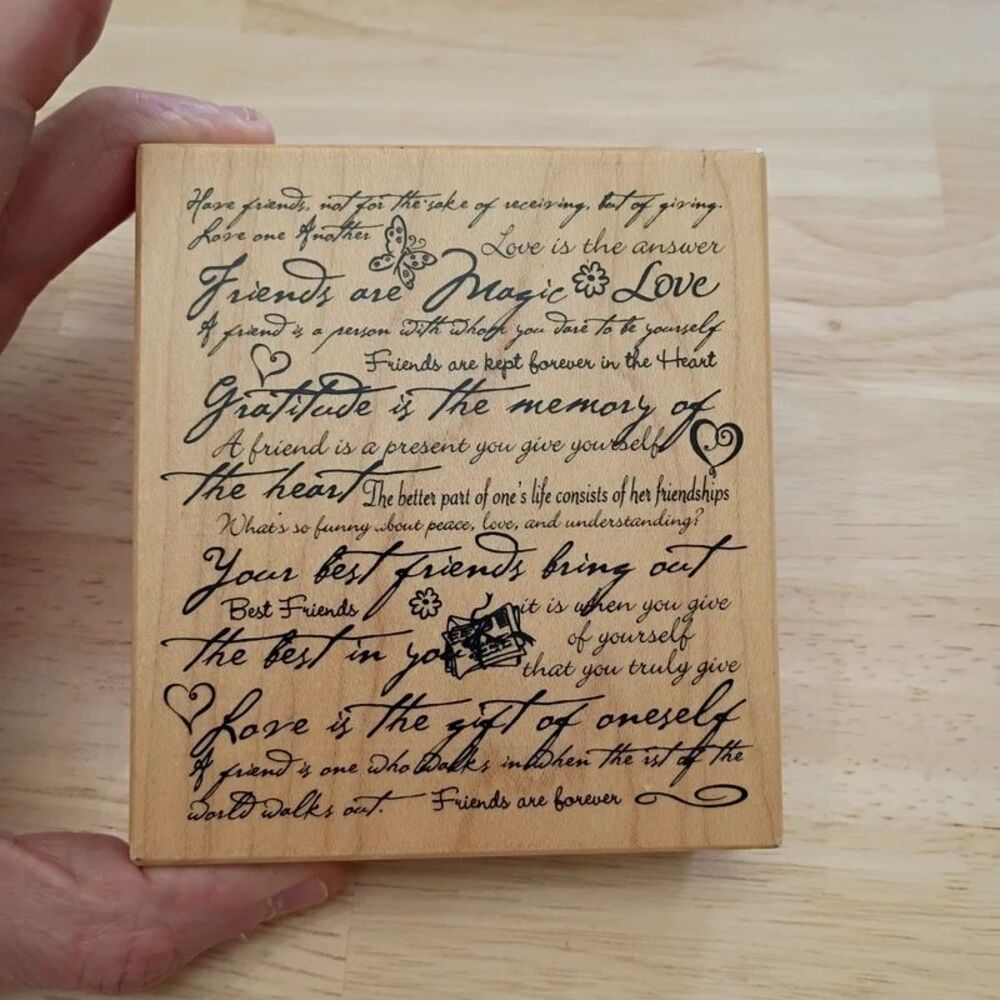 Have friends, not for the sake of receiving, but of giving.
Love one Another
Love is the answer
Friends are Magic
Love
A friend is a person with whom you dare to be yourself
Friends are kept forever in the Heart
Gratitude is the memory of
A friend is a present you give yourself
the heart
The better part of one's life consists of her friendships
What's so funny about peace, love, and understanding?
Your best friends bring out
Best Friends
it is when you give
the best in you
of yourself
that you truly give
Love is the gift of oneself
A friend is one who walks in when the rst of the
world walks out.
Friends are forever